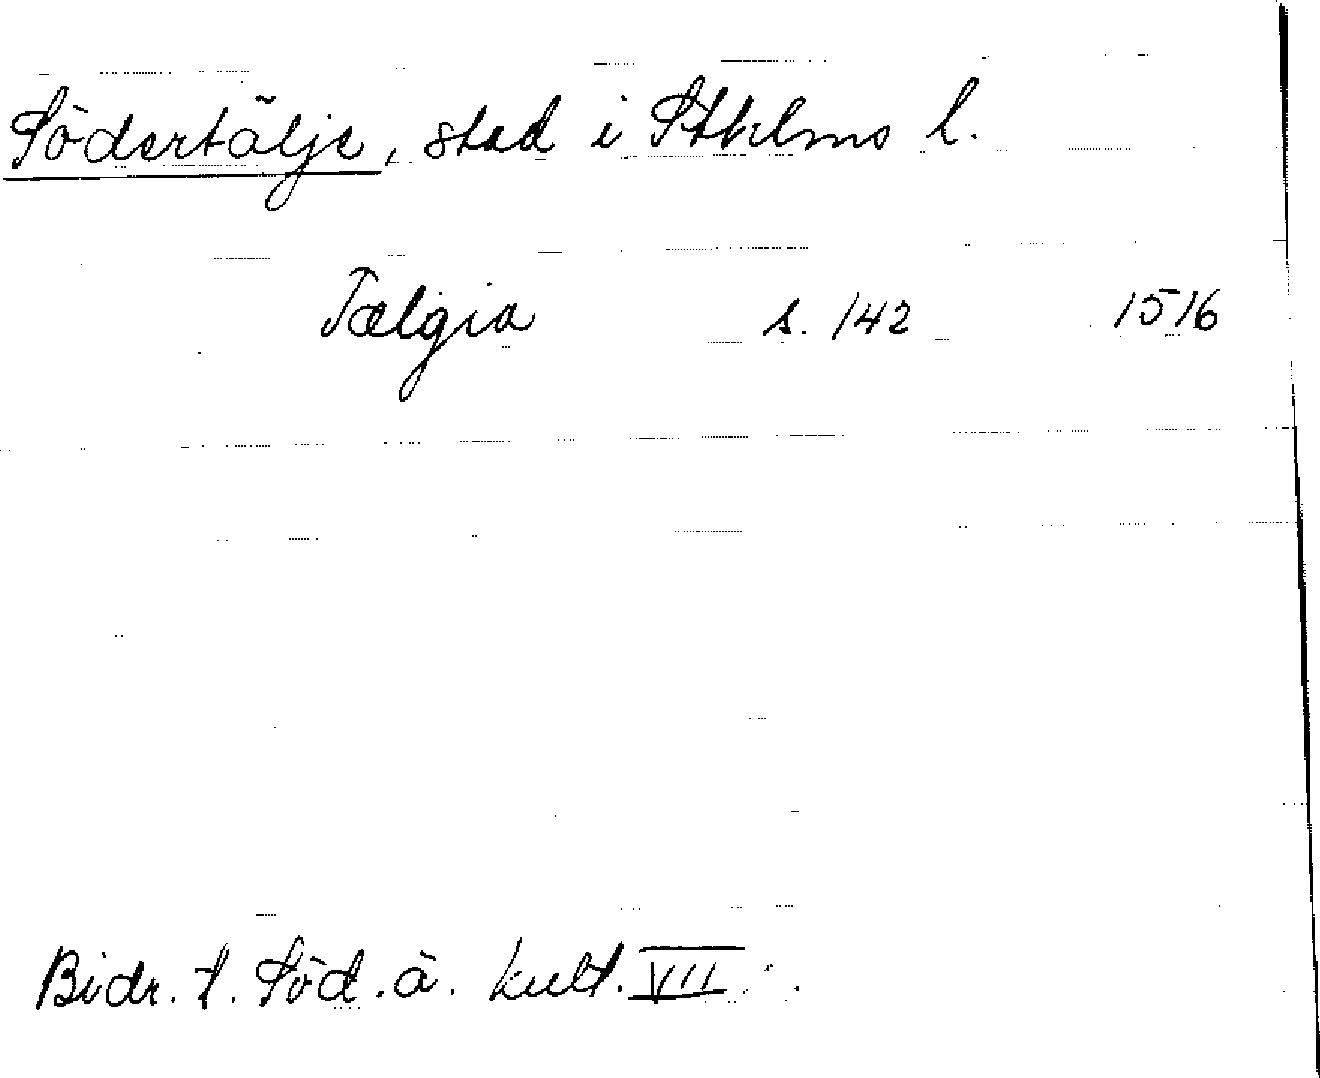 Södertälje, stad i Sthlms l.
Tælgia s. 142 1516
Bidr. t. Söd. ä. kult. VII.